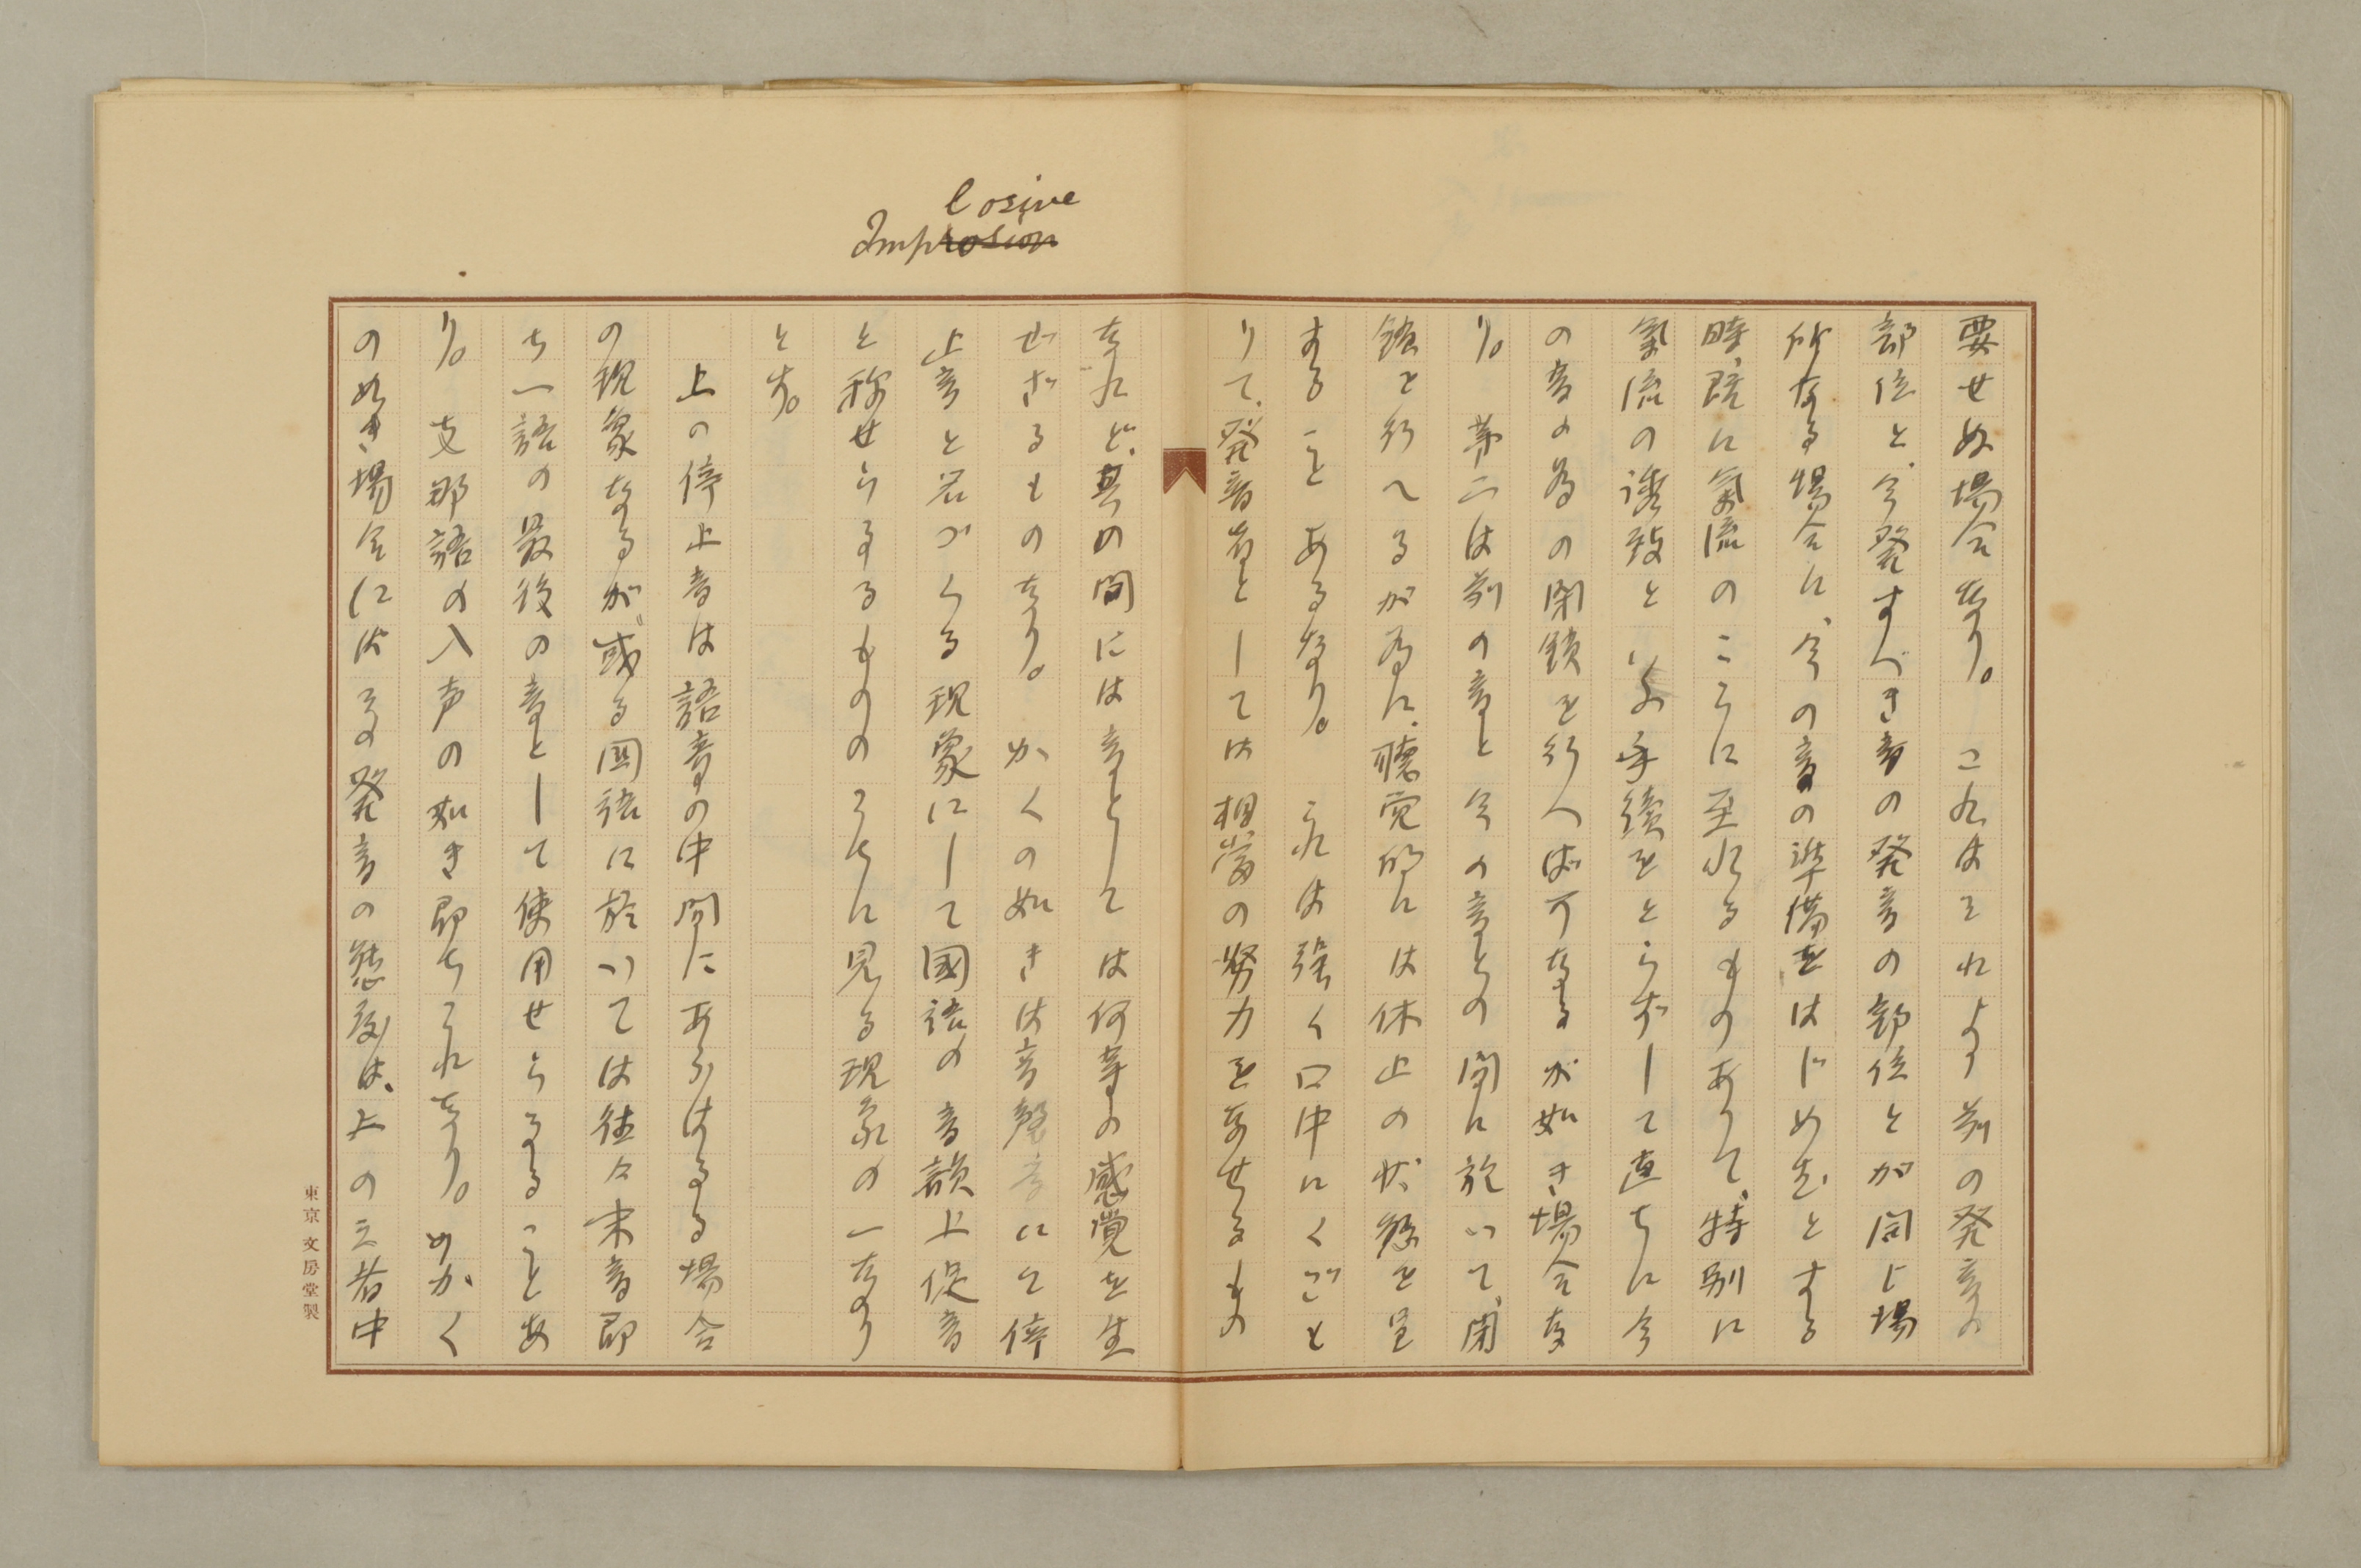 losive
Improsion
要せぬ場合なり。これはそれより前の発音の
部位と、今発すべき音の発音の部位とが同じ場
所なる場合に、今の音の準備をはじめむとする
時、既に氣流のこゝに至れるものありて、特別に
氣流の誘致といふ手續をとらずして直ちに今
の音の為の閉鎖を行へば可なるが如き場合な
り。第二は前の音と今の音との間に於いて、閉
鎖を行へるが為に、聴覚的には休止の状態を呈
することあるなり。これは强く口中にくごも
りて、発音者としては相當の努力をなせるもの
なれど、其の間には音としては何等の感覚を生
ぜざるものなり。かくの如きは音聲学にて停
止音と名づくる現象にして國語の音韻上促音
と稱せらるるもののうちに見る現象の一なり
とす。
上の停止音は語音の中間にあらはるる場合
の現象なるが、或る国語に於いては往々末音即
ち一語の最後の音として使用せらるることあ
り。支那語の入声の如き即ちこれなり。かく
の如き場合にはその発音の態度は、上の三者中
東京 文房堂製